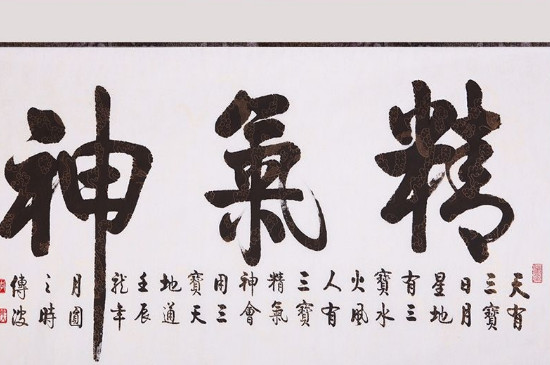 精氣神
天有
三寶
日月
星地
有三
寶水
火風
人有
三寶
精氣
神會
用三
寶天
地通
壬辰
龍年
月圓
之時
傳波